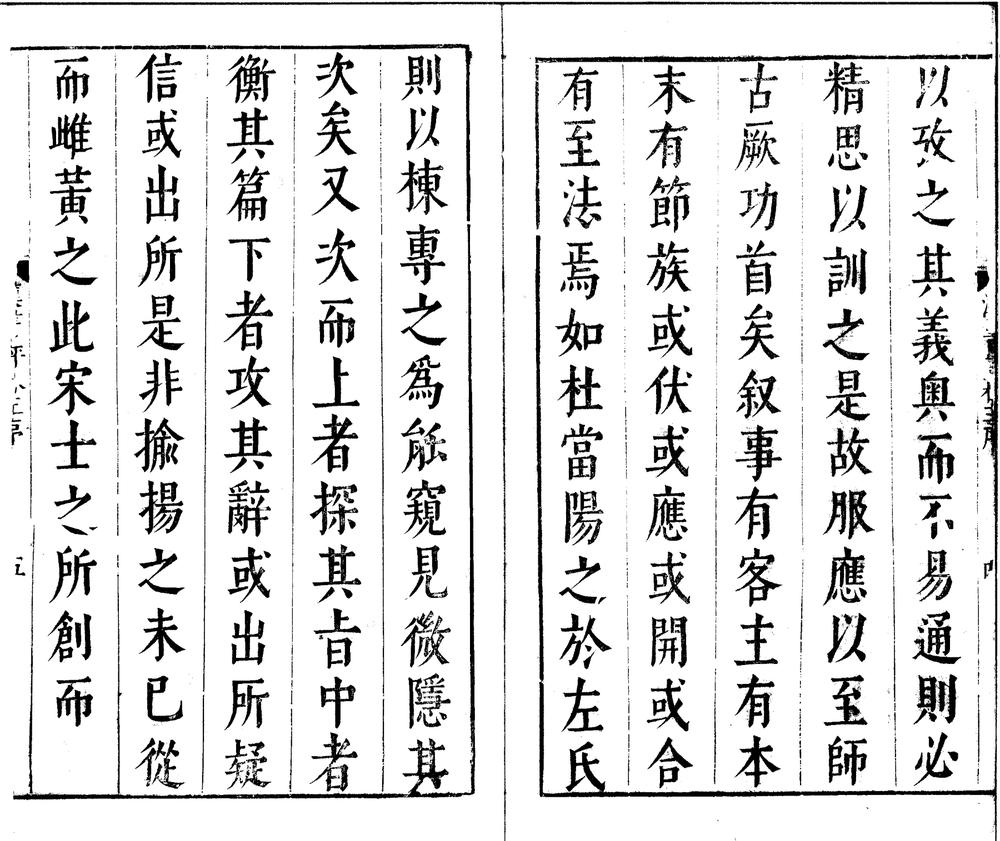 以攷之其義奥而不易通則必
精思以訓之是故服應以至師
古厥功首矣叙事有客主有本
末有節族或伏或應或開或合
有至法焉如杜當陽之於左氏
則以棟專之爲能窺見微隱其
次矣又次而上者探其旨中者
衡其篇下者攻其辭或出所疑
信或出所是非揄揚之未已從
而雌黃之此宋士之所創而
五